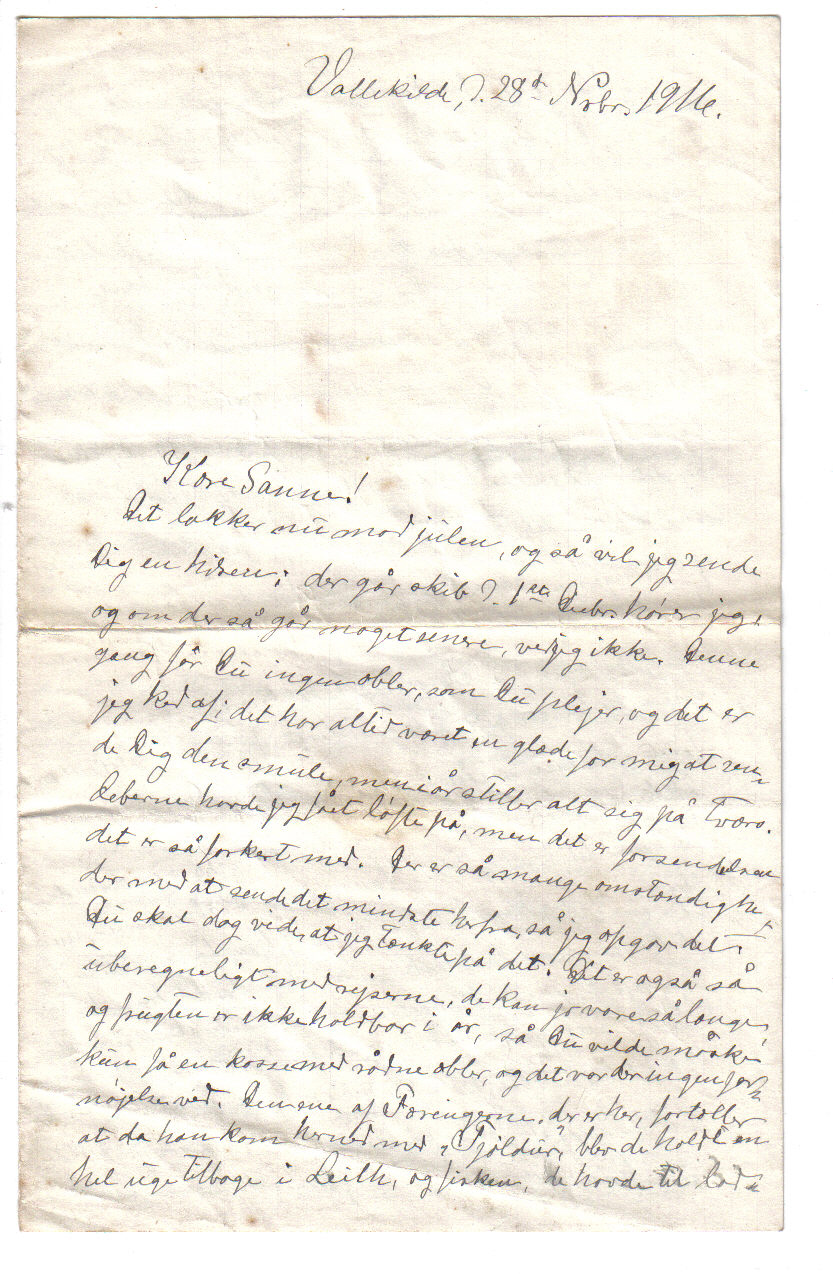 Vallekilde, d. 28de Novbr. 1916.
Kære Sanne!
Det lakker nu mod julen, og så vil jeg sende
Dig en hilsen; der går skib d. 1ste Decbr. hører jeg,
og om der så går noget senere, ved jeg ikke. Denne
gang får Du ingen æbler, som Du plejer, og det er
jeg ked af; det har altid været en glæde for mig at sen-
de Dig den smule, men i år stiller alt sig på tværs.
Æblerne havde jeg fået løfte på, men det er forsendelsen
det er så forkert med. Der er så mange omstændighe-
der med at sende det mindste herfra, så jeg opgav det.
Du skal dog vide, at jeg tænkte på det. Det er også så
uberegneligt med rejserne, de kan jo vare så længe,
og frugten er ikke holdbar i år, så Du vilde måske
kun få en kasse med rådne æbler, og det var der ingen for-
nøjelse ved. Den ene af Færingerne, der er her, fortæller
at da han kom herned med „Tjaldur", blev de holdt en
hel uge tilbage i Leith, og fisken, de havde til lads